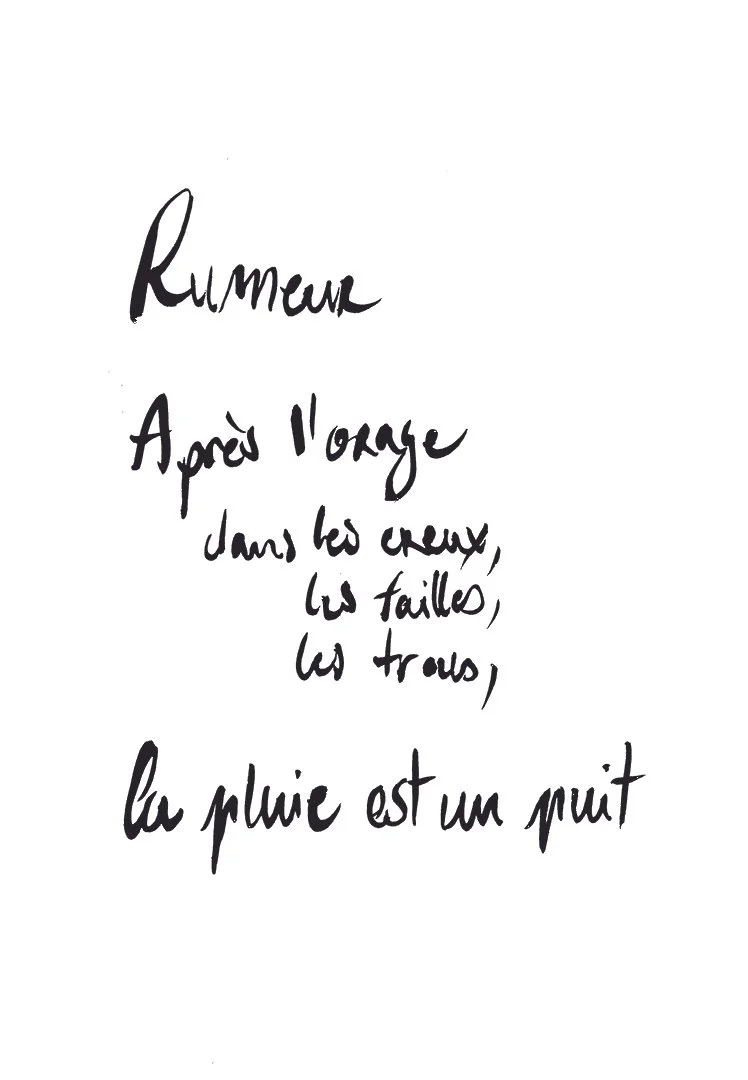 Rumeur
Après l'orage
dans les creux,
les failles,
les trous,
la pluie est un puit